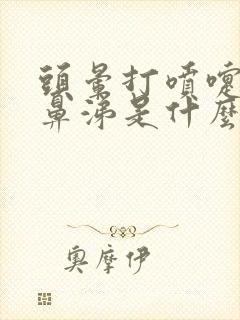 頭暈打噴嚏
鼻涕是什麼
奧摩伊